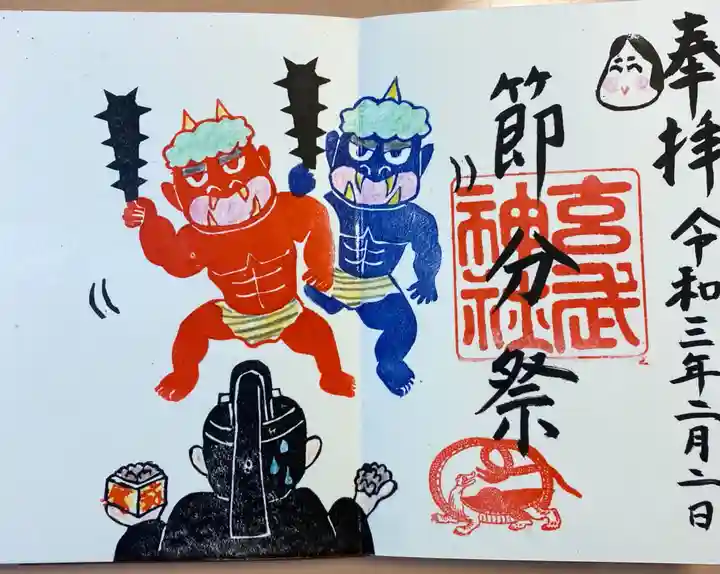 奉拝
令和三年二月二日
節分祭
玄武神社